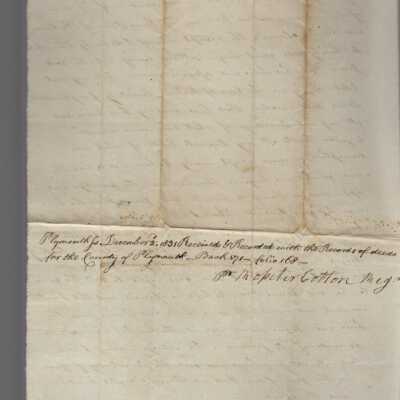 Plymouth ss. December 2. 1831 Received & Recorded with the Records of deeds
for the County of Plymouth - Book 171 - folio 168 -
pr Rossiter Cotton Regr